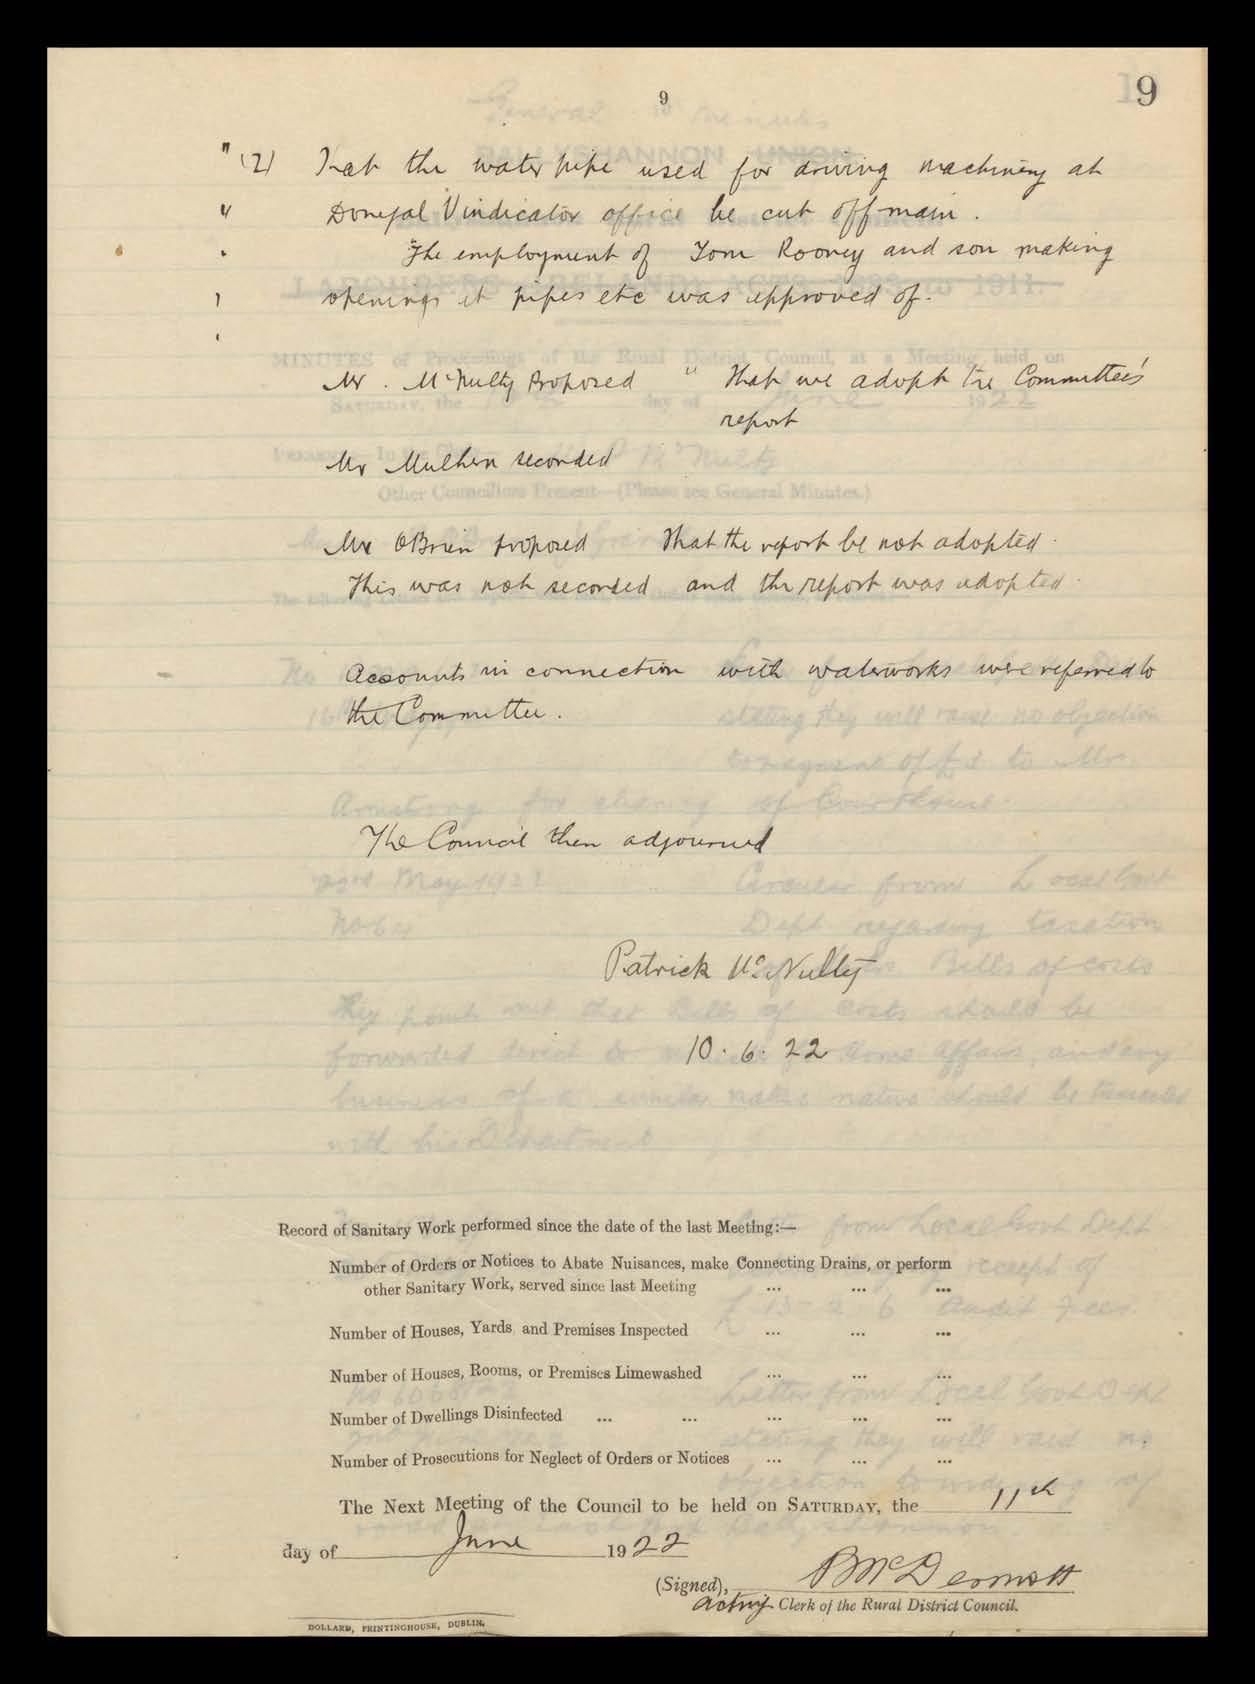 9
19
" (2) That the water pipe used for driving machinery at
" Donegal Vindicator office be cut off main.
The employment of Tom Rooney and son making
openings it pipes etc was approved of.
Mr. McNulty Proposed " That we adopt the Committee's
report
Mr Mulhern seconded
Mr OBrien proposed That the report be not adopted.
This was not seconded and the report was adopted.
Accounts in connection with waterworks were referred to
the Committee.
The Council then adjourned
Patrick McNulty
10. 6. 22
Record of Sanitary Work performed since the date of the last Meeting:—
Number of Orders or Notices to Abate Nuisances, make Connecting Drains, or perform
other Sanitary Work, served since last Meeting ... ... ...
Number of Houses, Yards and Premises Inspected ... ... ...
Number of Houses, Rooms, or Premises Limewashed ... ... ...
Number of Dwellings Disinfected ... ... ... ... ...
Number of Prosecutions for Neglect of Orders or Notices ... ... ...
The Next Meeting of the Council to be held on SATURDAY, the 11th
day of June 1922
(Signed), P McDermott
acting Clerk of the Rural District Council.
DOLLARD, PRINTINGHOUSE, DUBLIN.